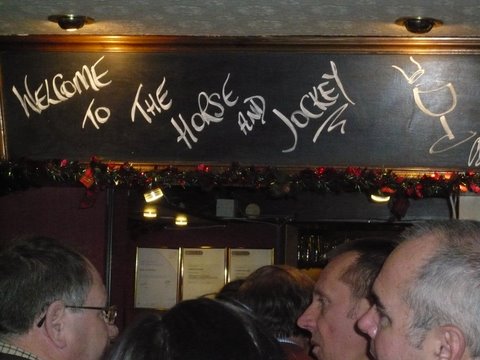 WELCOME TO THE HORSE AND JOCKEY